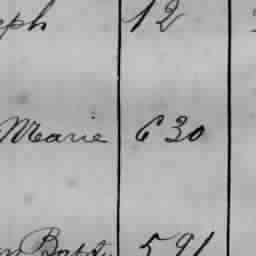 eph 12
Marie 630
591